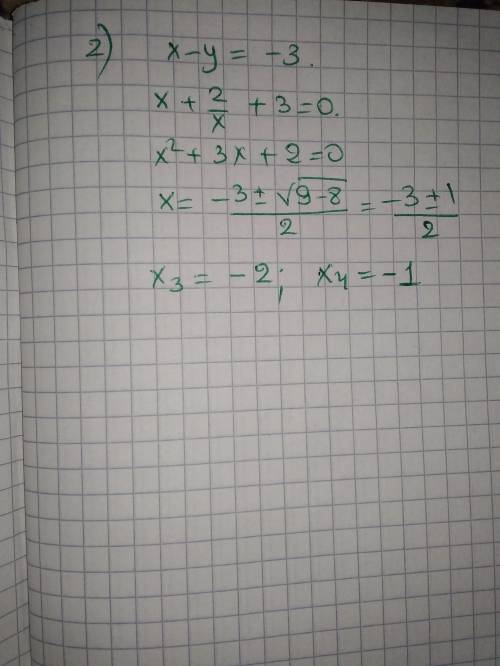 2) x-y = -3.
x + 2/x + 3 = 0.
x² + 3x + 2 = 0
x = -3 ± √9-8 / 2 = -3 ± 1 / 2
x₃ = -2; x₄ = -1